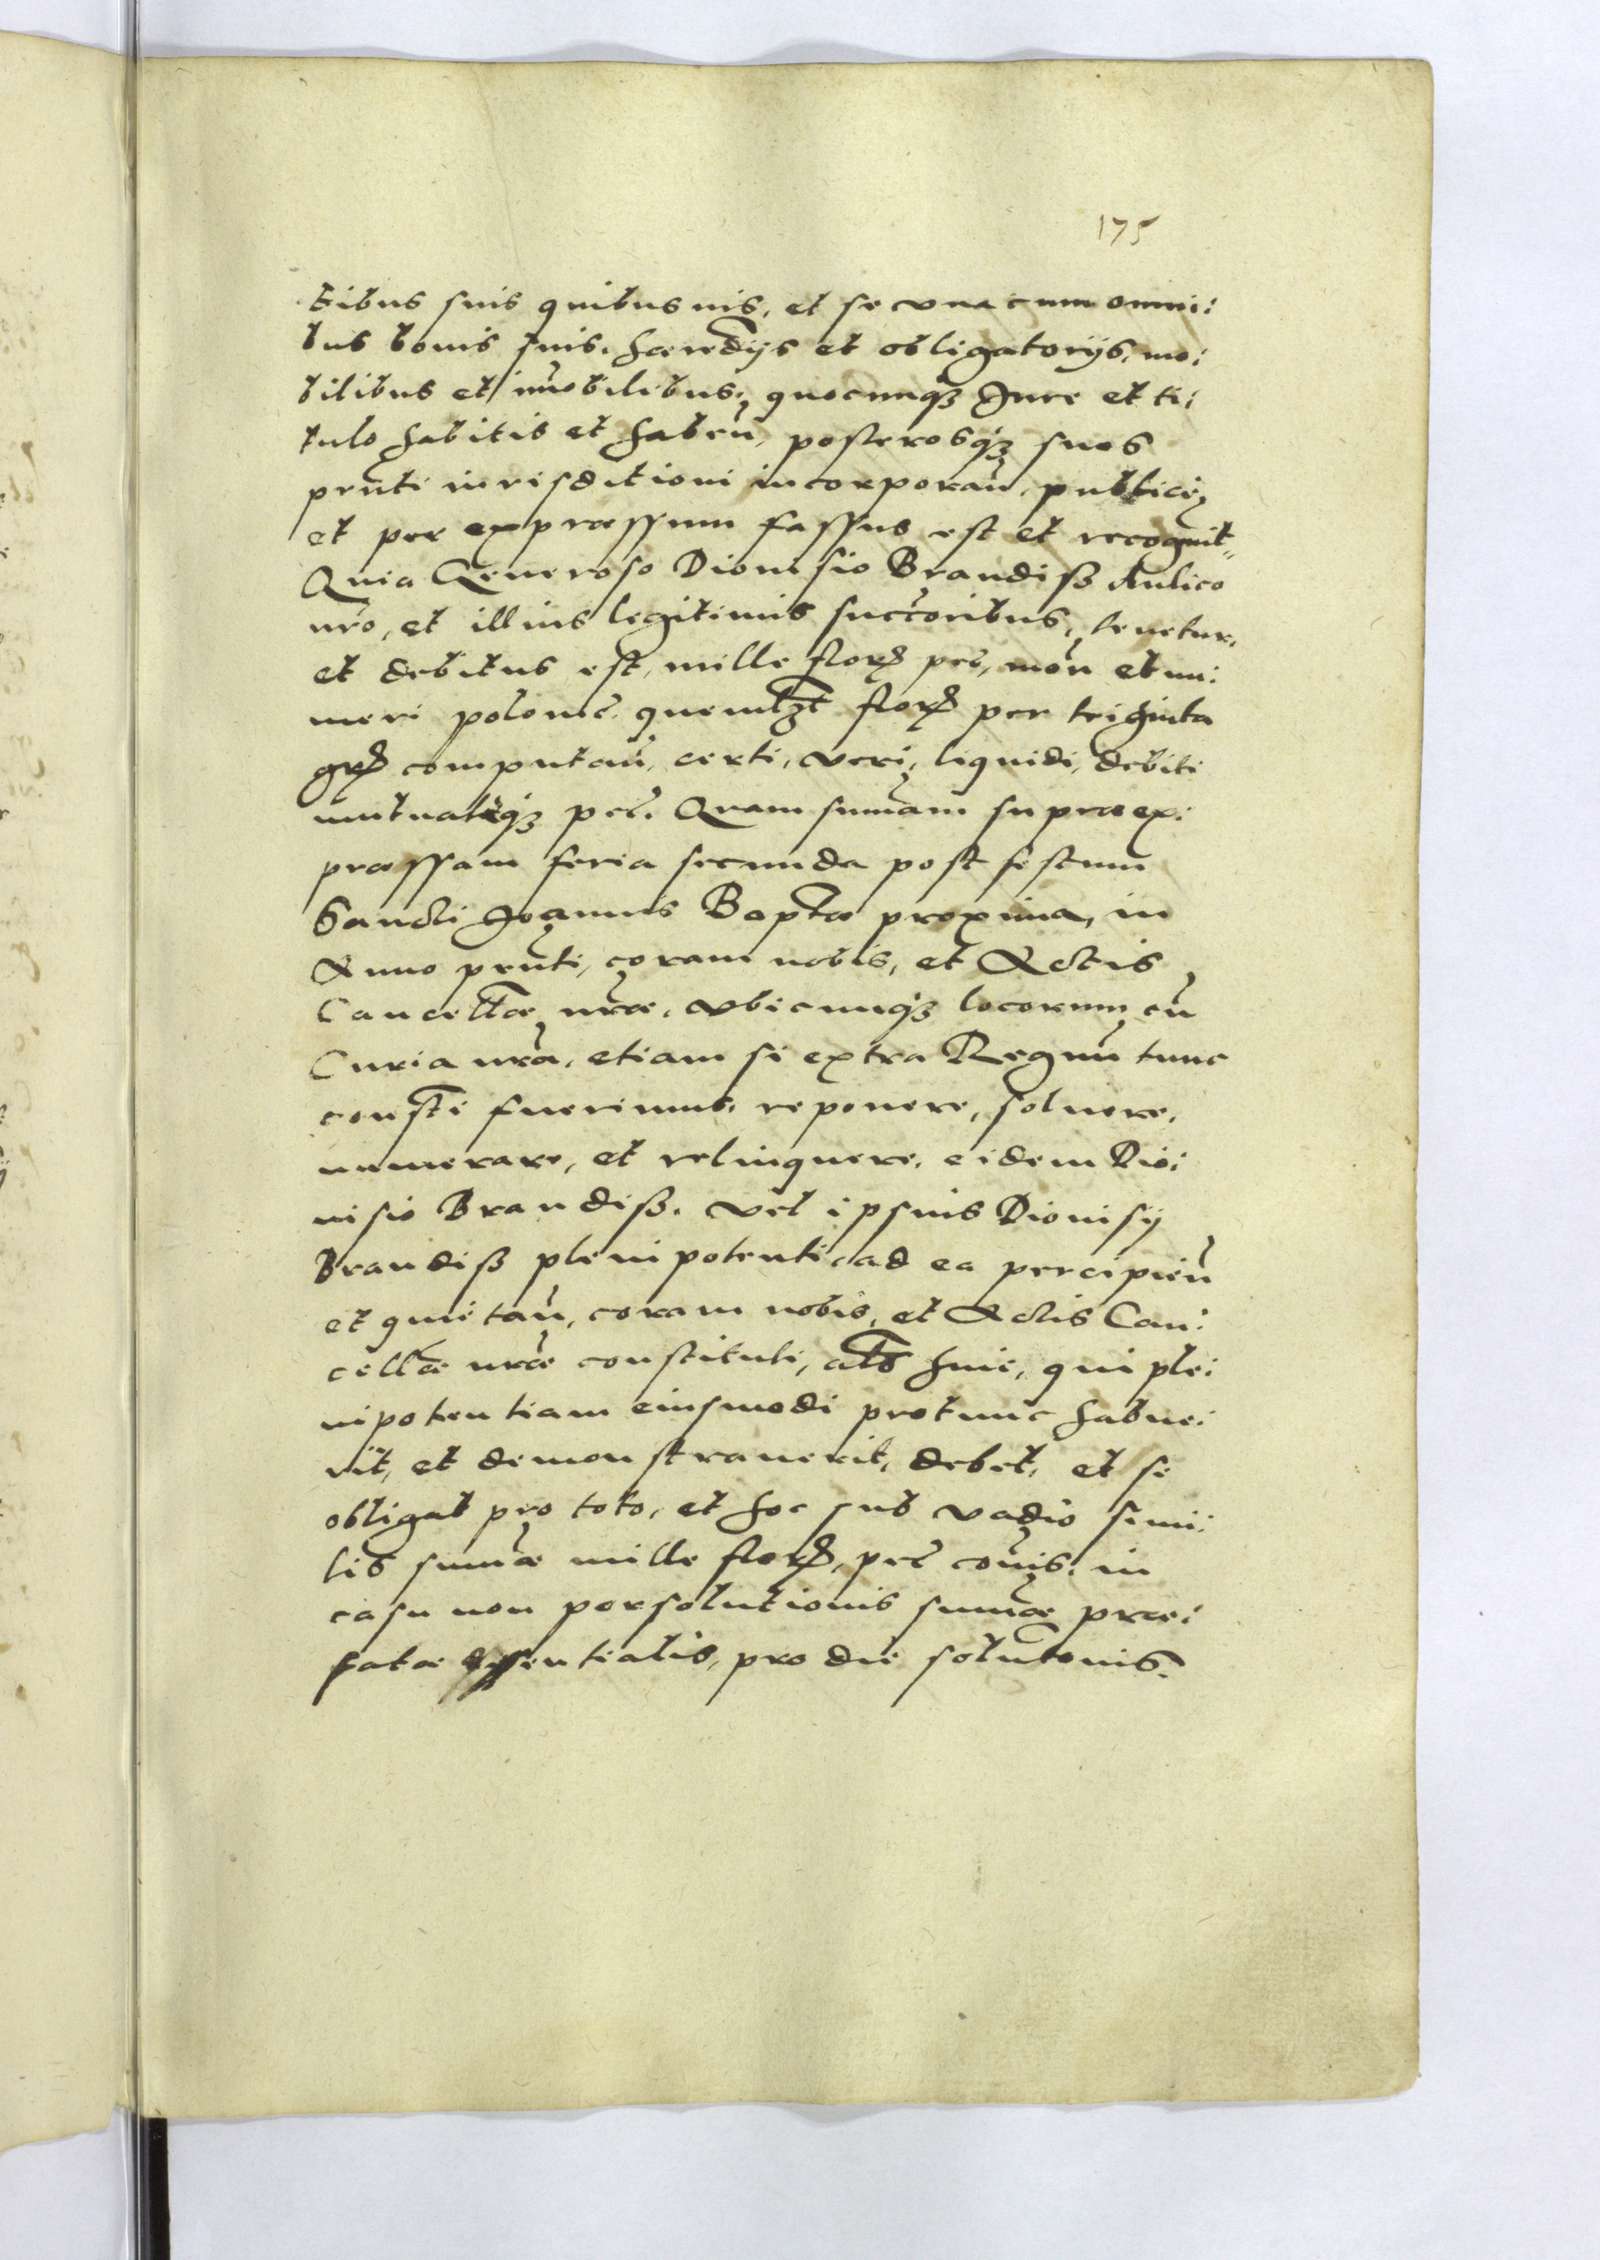 175
tibus suis quibusuis, et se vna cum omni:
bus bonis suis, haeredijs et obligatorijs, mo:
bilibus et im̃obilibus, quocunq̃ Iure et ti:
tulo habitis et haben̄, posterosq̃ suos
pnti iurisditioni incorporan̄, publicè,
et per expraessum fassus est et recognit.
Quia Generoso Dionisio Brandiß Aulico
nr̃o, et illius legitimis succ̃oribus, tenetur,
et debitus est, mille flor̃ pec̃, mon̄ et nu:
meri polonic̃, quemlꝫt flor̃ per triginta
gr̃ computan̄, certi, veri, liquidi, debiti
mutuatiq̃ pec̃. Quam sum̃am supraex:
praessam feria secunda post festum
Sancti Ioannis Baptae proxima, in
Anno pnti, coram nobis, et Actis
Cancellae nr̃ae, vbicunq̃ locorum cũ
Curia nr̃a, etiam si extra Regnũ tunc
consti fuerimus, reponere, soluere,
numerare, et relinquere, eidem Dio:
nisio Brandiß, vel ipsius Dionisij
Brandiß plenipotenti, ad ea percipien̄
et quitan̄, coram nobis, et Actis Can:
cellae nr̃ae constituti, als huic, qui ple:
nipotentiam eiusmodi protunc habue:
rit, et demonstrauerit, debet, et se
obligat pro toto, et hoc sub vadio simi:
lis sum̃ae mille flor̃, pec̃ com̃is, in
casu non persolutionis sum̃ae prae:
fatae essentialis, pro die solutionis.